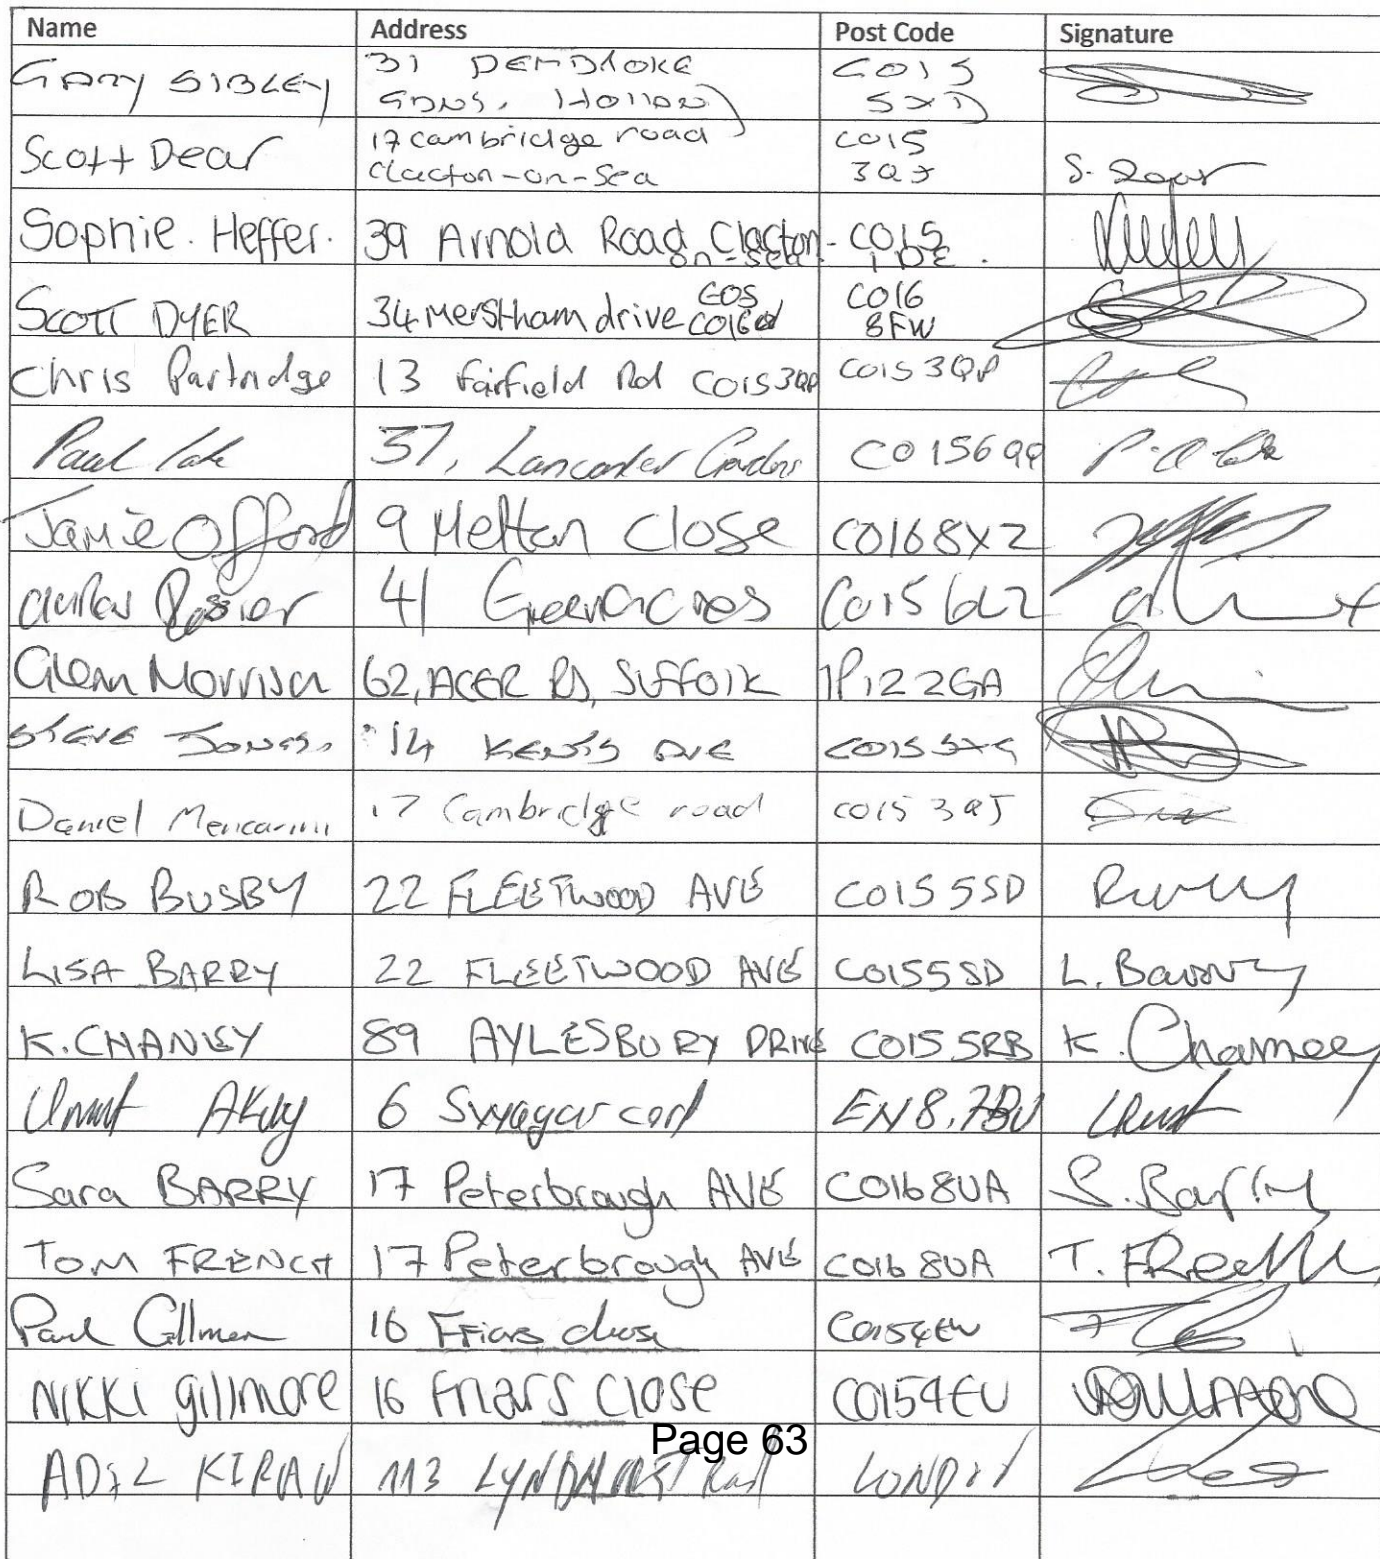 Name Address Post Code Signature
GARY SIBLEY 31 PEMBROKE CO15
GDNS, HOLLAND 5XD
Scott Dear 17 Cambridge road CO15
Clacton-on-Sea 3QJ S. Dear
Sophie. Heffer. 39 Arnold Road Clacton- CO15
on-Sea. 1DE.
SCOTT DYER 34 Merstham drive COS CO16
8FW
Chris Partridge 13 Fairfield Rd CO153QP CO15 3QP
Paul 37, Lancaster Gardens CO156QQ
Jamie Offord 9 Melton Close CO168XZ
41 Greenacres CO15 6LZ
Glenn Morrison 62, ACER RD, SUFFOLK IP122GA
STEVE JONES. 14 AVE CO15
Daniel Mencarini 17 Cambridge road CO15 3QJ
ROB BUSBY 22 FLEETWOOD AVE CO15 5SD
LISA BARRY 22 FLEETWOOD AVE CO155SD L. Barry
K. CHANEY 89 AYLESBURY DRIVE CO15 5RB K. Chaney
Umut 6 EN8,7BU Umut
Sara BARRY 17 Peterbrough AVE CO168UA S. Barry
TOM FRENCH 17 Peterbrough AVE CO16 8UA T. FRench
Paul 16 Friars close CO154EU
NIKKI gillmore 16 Friars Close CO154EU
Page 63
113 LYNDHURST Road LONDON